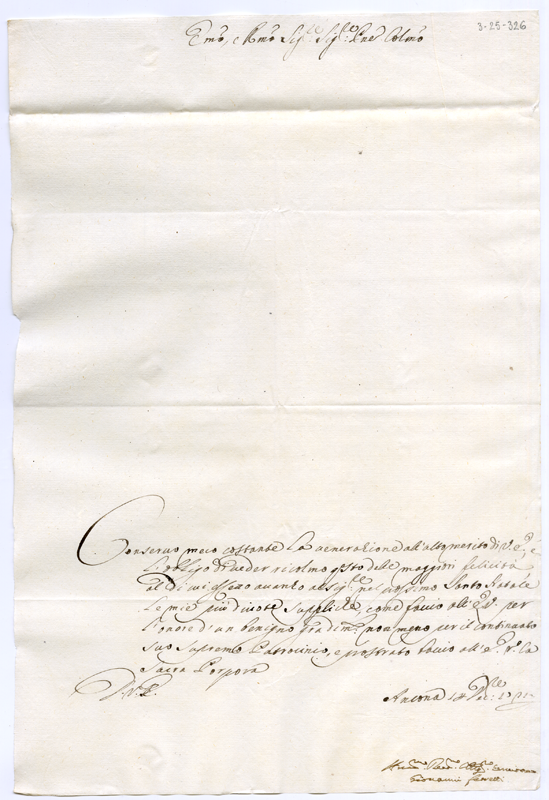 3-25-326
Emo, e Rmo Sigre Sigre Pne Colmo
Conseruo meco costante la ueneratione all'alto merito di V. Eª, e
l'obligo di ueder ricolmo delle maggiori felicità
al di cui auanzo al Sigre nel prossimo Santo Natale
le mie più diuote Suppliche, come faccio all'Eª V. per
l'onore d'un benigno gradimto non meno per il continuato
suo supremo Patrocinio, e prostrato bacio all'Eª Vª la
Sacra Porpora
D. V. E.
Ancona 14 Xbre
Humo Deuo Seruitore
Giouanni